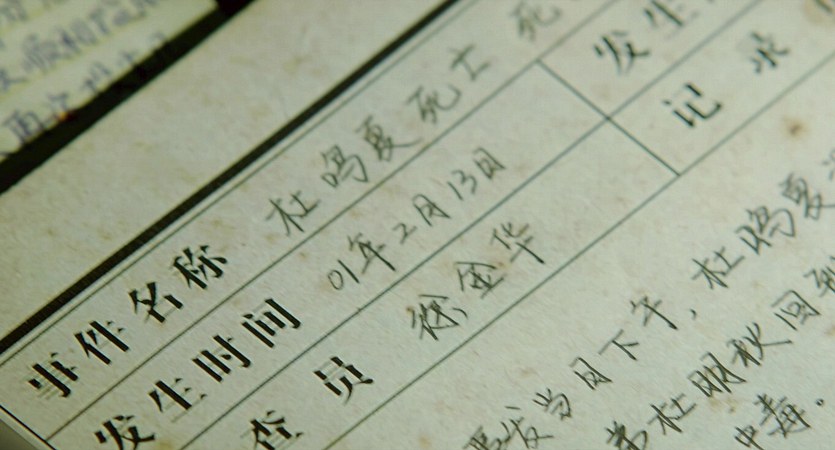 事件名称 杜鸣夏死亡 死
发生时间 01年2月13日 发生
查员 徐金华 记录
发当日下午,杜鸣夏
弟杜明秋回到
中毒。